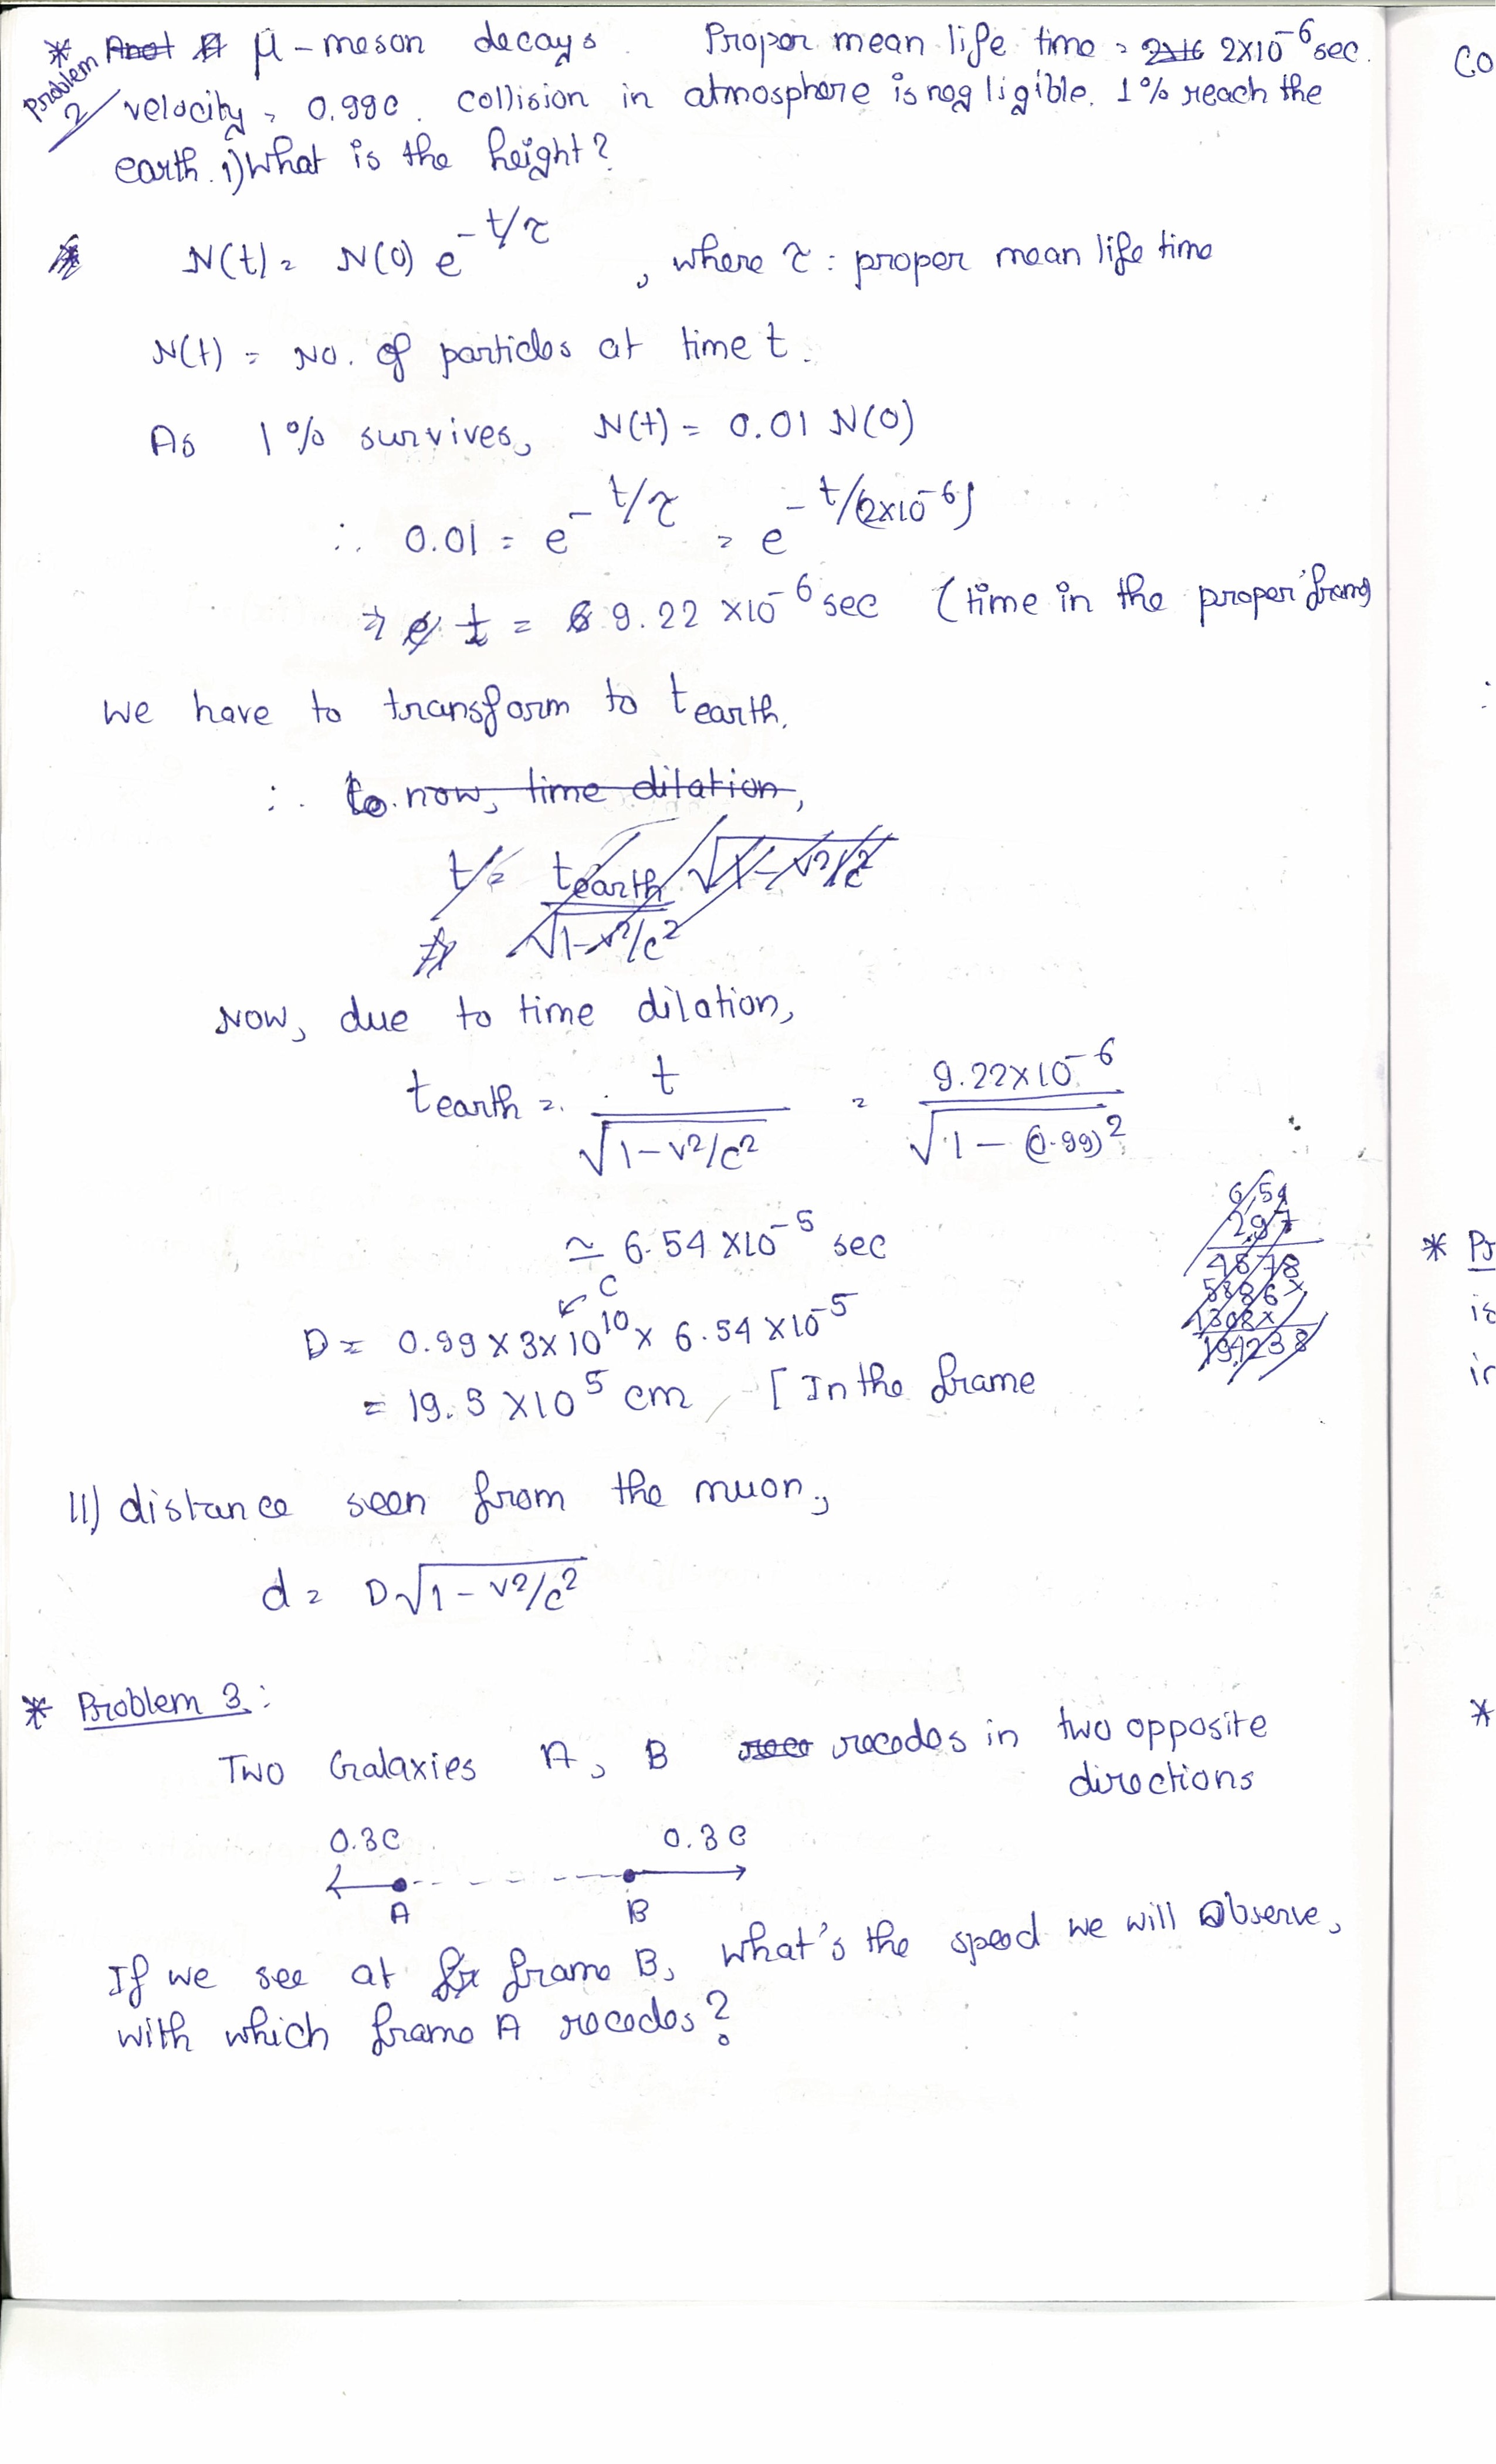 * Problem 2/ μ-meson decays. Proper mean life time = 2×10⁻⁶ sec.
velocity = 0.99c. collision in atmosphere is negligible. 1% reach the
earth. i) What is the height?
N(t) = N(0) e^(-t/τ), where τ : proper mean life time
N(t) = No. of particles at time t.
As 1% survives, N(t) = 0.01 N(0)
∴ 0.01 = e^(-t/τ) = e^(-t/(2×10⁻⁶))
⇒ t = 9.22 ×10⁻⁶ sec (time in the proper frame
We have to transform to t_earth.
∴ to now, time dilation,
t = t_earth √(1-v²/c²)
√(1-v²/c²)
Now, due to time dilation,
t_earth = t / √(1-v²/c²) = 9.22×10⁻⁶ / √(1-(0.99)²)
6.54
2.97
≃ 6.54 ×10⁻⁵ sec
4578
5886×
1308×
19.4238
D = 0.99 × 3×10¹⁰ × 6.54 ×10⁻⁵
↙ C
= 19.5 ×10⁵ cm [In the frame
II) distance seen from the muon,
d = D√(1-v²/c²)
* Problem 3:
Two Galaxies A, B recedes in two opposite
directions
0.3C 0.3C
A B
If we see at frame B, what's the speed we will observe,
with which frame A recedes?
CO
* Pr
is
ir
*